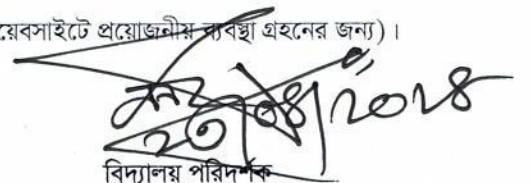 য়েবসাইটে প্রয়োজনীয় ব্যবস্থা গ্রহনের জন্য)।
২৩/০৪/২০২৪
বিদ্যালয় পরিদর্শক